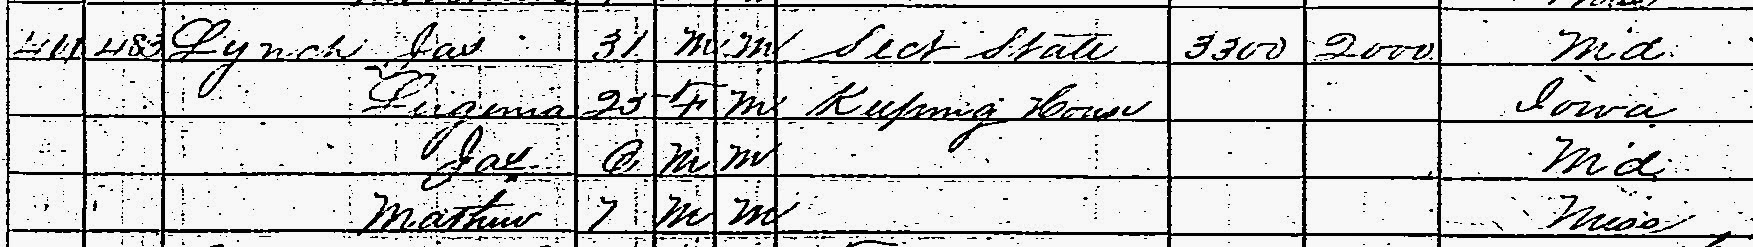 483 Lynch Jas 31 M M Sect State 3300 2000 Md
Eugenia 25 F M Keeping House Iowa
Jas 6 M M Md
Mathew 7 M M Miss